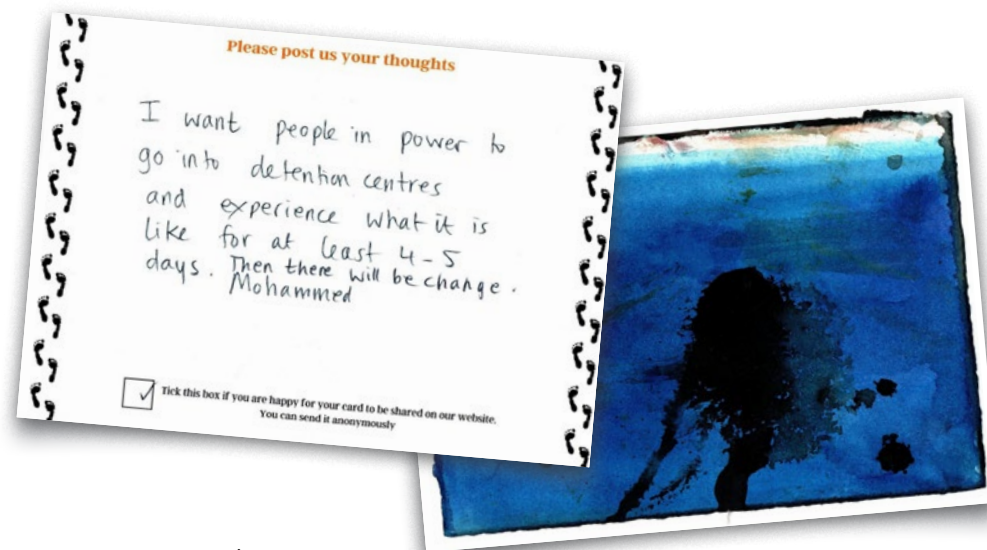 Please post us your thoughts
I want people in power to
go into detention centres
and experience what it is
like for at least 4-5
days. Then there will be change.
Mohammed
Tick this box if you are happy for your card to be shared on our website.
You can send it anonymously